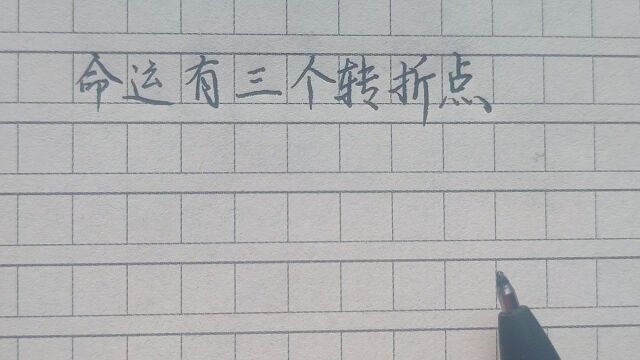 命运有三个转折点